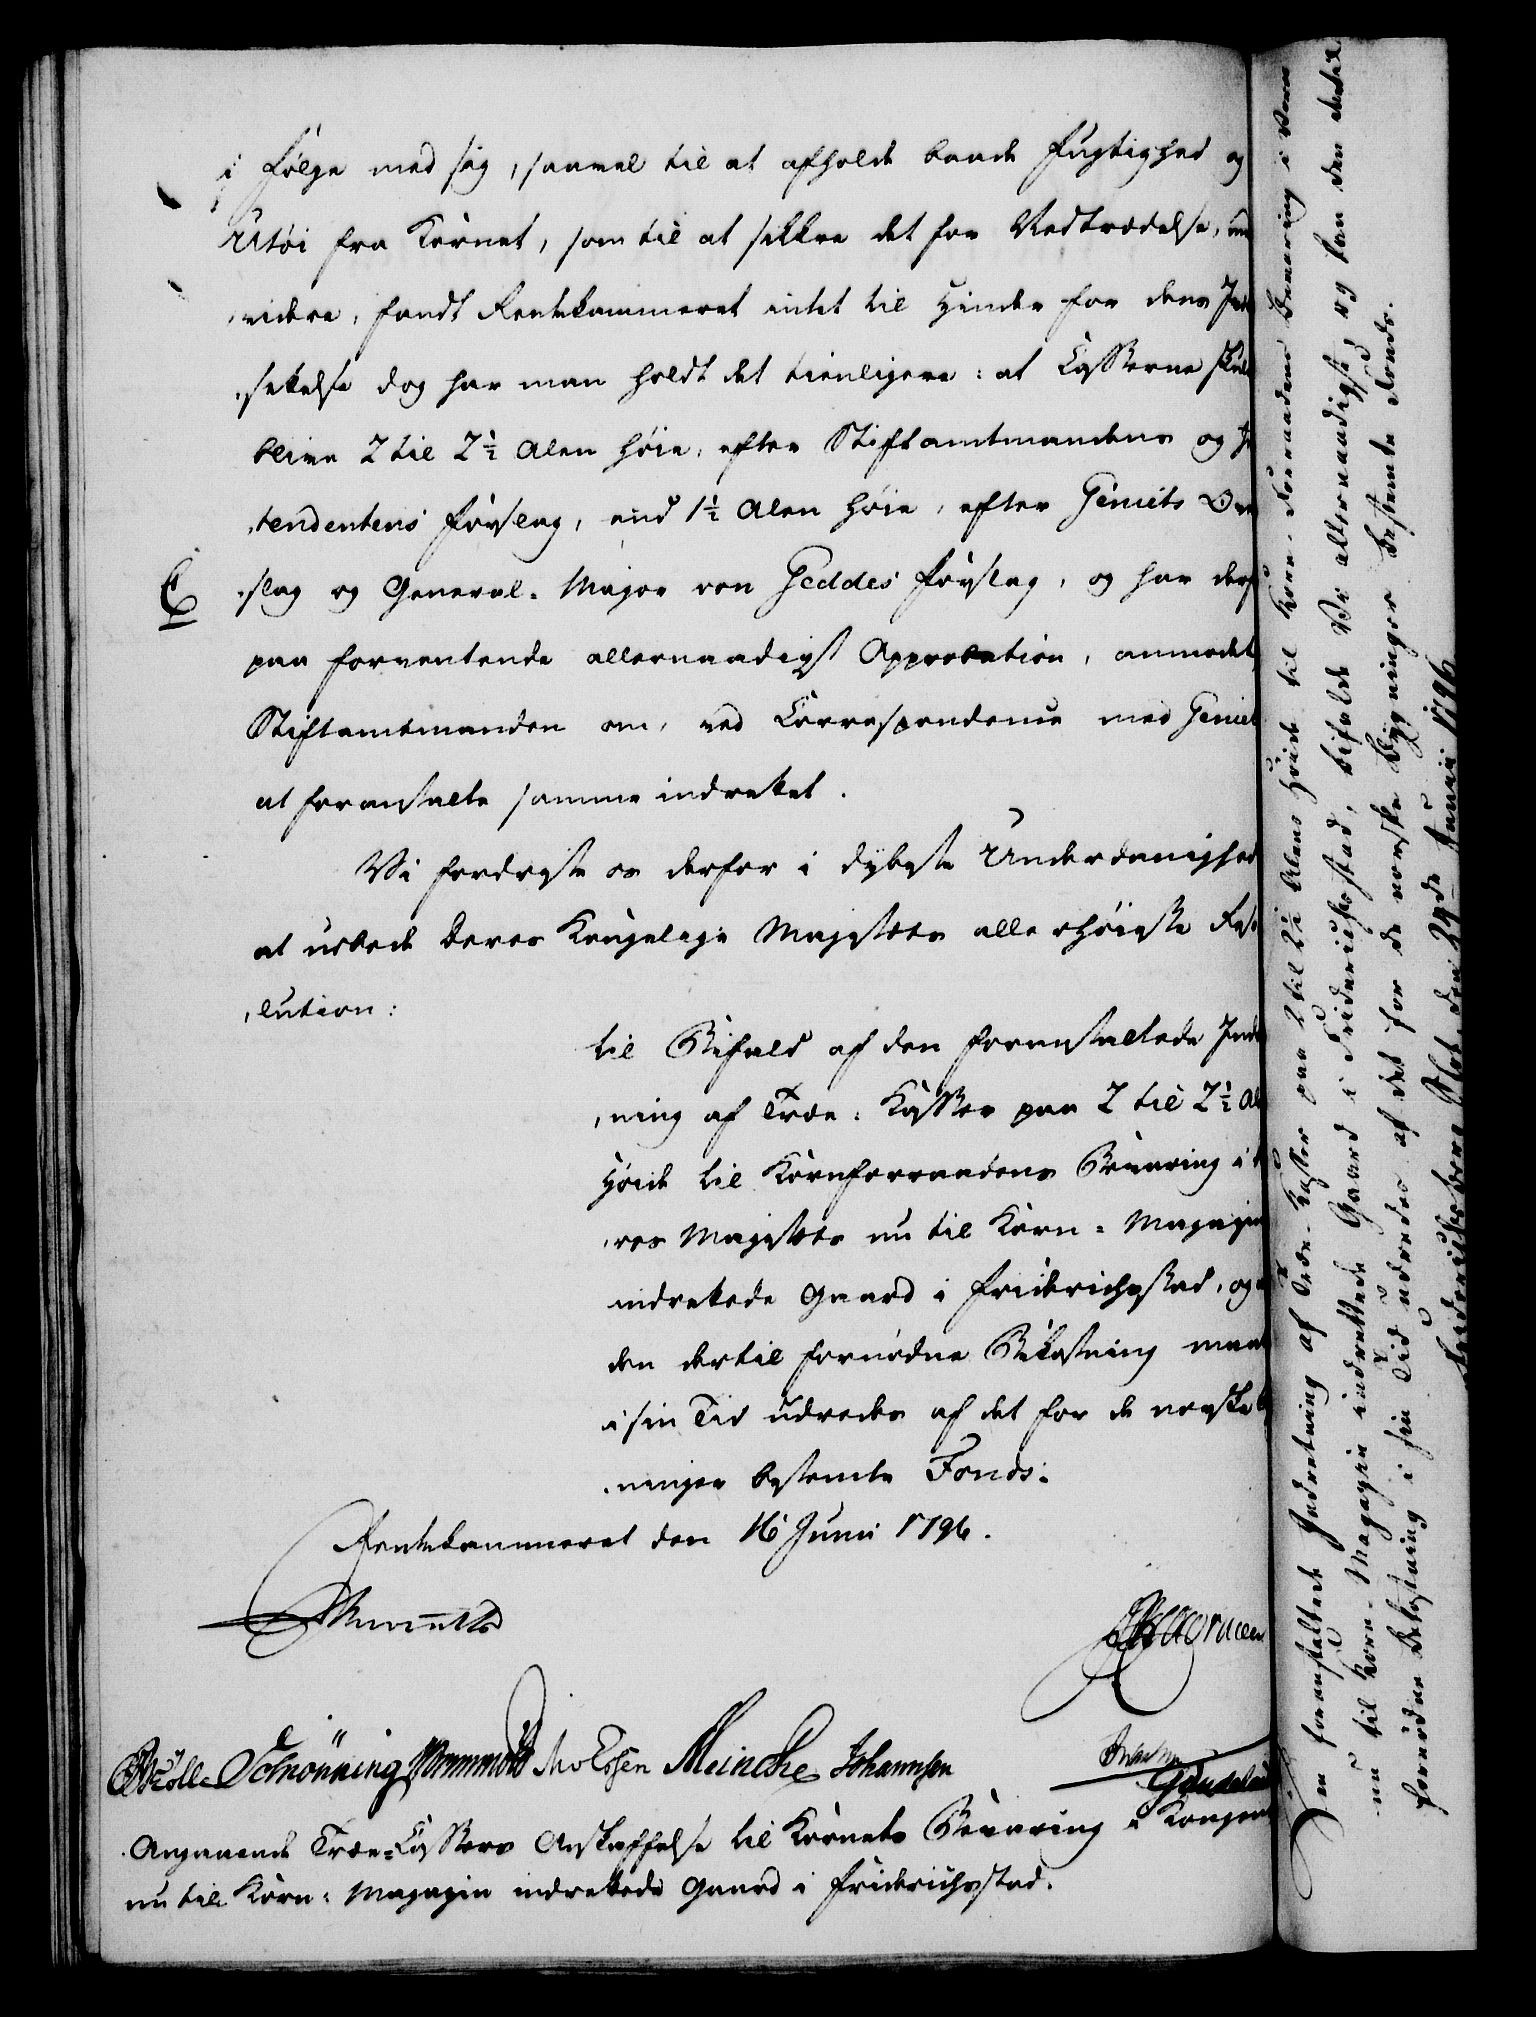 i Følge med sig, saavel til at afholde baade Fugtighed og
Utøi fra Kornet, som til at sikkre det for Nedtrædelse,
videre, fandt Rentekammeret intet til Hinder for dens Ind
rettelse dog har man holdt det tienligere: at Casserne skulde
blive 2 til 2½ Alen høie, efter Stiftamtmandens og In
tendentens Forslag, end 1½ Alen høie, efter Geniets Over
slag og General-Major von Geddes Forslag, og har der
paa forventende allernaadigst Approbation, anmodet
Stiftamtmanden om, ved Correspondence med Geniet
at foranstalte samme indrettet.
Vi fordriste os derfor i dybeste Underdanighed
at udbede Deres Kongelige Majestets allerhøieste Reso
lution:
til Bifald af den foranstaltede Indret
ning af Træe-Kasser paa 2 til 2½ Al
Høide til Kornforraadens Bevaring i De
res Majestets nu til Korn-Magazin
indrettede Gaard i Friderichsstad, og
den dertil fornødne Bekostning maae
i sin Tid udredes af det for de norske Byg
ninger bestemte Fonds.
Rentekammeret den 16 Junii 1796.
Schrønning Wormskiold Meincke Johannsen
Angaaende Træe-Cassers Anskaffelse til Kornets Bevaring i Kongens
nu til Korn-Magazin indrettede Gaard i Friderichsstad.
Den foranstaltede Indretning af Træe-Kasser paa 2 til 2½ Alens Høide til Korn-Forraadens Bevaring i Vores
nu til Korn-Magazin indrettede Gaard i Friderichsstad, bifalde Vi allernaadigst; og kan den dertil
fornødne Bekostning i sin Tid udredes af det for de norske Bygninger bestemte Fonds.
Friderichsberg Slot, den 29de Junii 1796